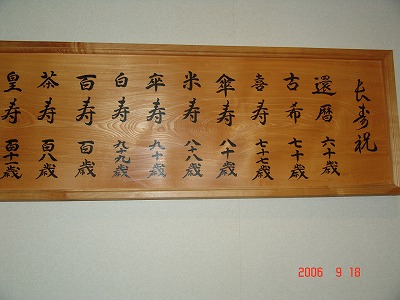 長寿祝
還暦 六十歳
古希 七十歳
喜寿 七十七歳
傘寿 八十歳
米寿 八十八歳
卒寿 九十歳
白寿 九十九歳
百寿 百歳
茶寿 百八歳
皇寿 百十一歳
2006 9 18